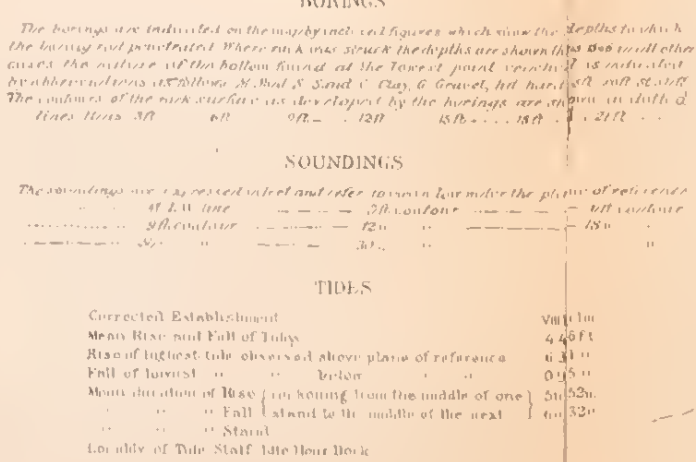 BORINGS
The borings are indicated on the map by inclined figures which show the depths to which
the boring rod penetrated Where rock was struck the depths are shown thus in all other
cases the nature of the bottom found at the lowest point reached is indicated
by abbreviations as follows M. Mud S Sand C Clay, G Gravel, hd hard sft soft st stiff
The contours of the rock surface as developed by the borings are shown in dotted
lines thus 3ft 6ft 9ft 12ft 15ft 18ft 21ft
SOUNDINGS
The soundings are expressed in feet and refer to mean low water the plane of reference
line 3ft contour 6ft contour
9ft contour 12 " 18 "
30 " "
TIDES
Corrected Establishment VIII
Mean Rise and Fall of Tides 4.46 ft
Rise of highest tide observed above plane of reference "
Fall of lowest " " below " "
Mean duration of Rise { reckoning from the middle of one } 5h 52m.
" " " Fall { stand to the middle of the next } 6h 32m
" " " Stand
Locality of Tide Staff Dock